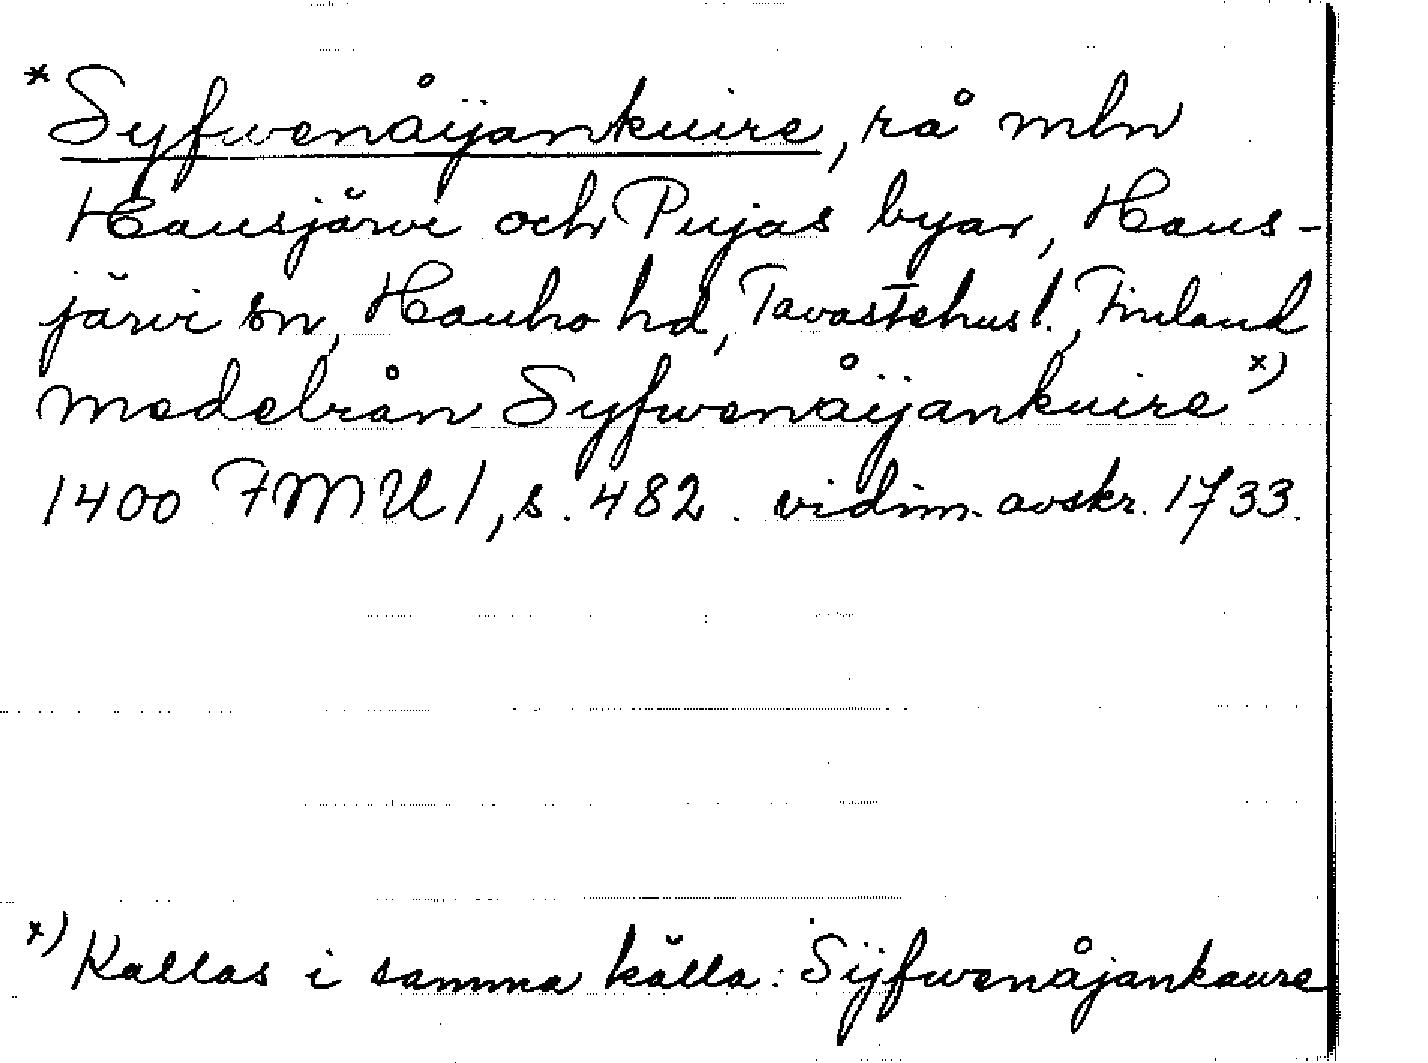 *Syfwenåÿankuire, rå mln
Hausjärvi och Pujas byar, Haus-
järvi sn, Hauho hd, Tavastehus l., Finland
medelrån Syfwenåÿankuire x)
1400 FMU 1, s. 482. vidim. avskr. 1733.
x) Kallas i samma källa: Sÿfwenåjankaure